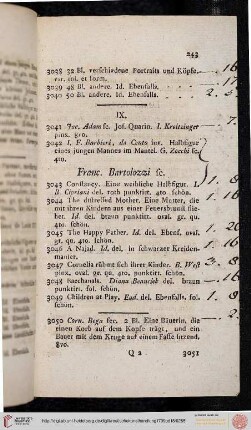 243
3038 32 Bl. verschiedene Portraits und Köpfe.
var. inv. et form.
3039 48 Bl. andere. Id. Ebenfalls.
3040 50 Bl. andere. Id. Ebenfalls.
IX.
3041 Jac. Adam sc. Jos. Quarin. I. Kreitzinger
pinx. gro.
3042 I. F. Barbieri, da Cento inv. Halbfigur
eines jungen Mannes im Mantel. G. Zocchi sc.
4to.
Franc. Bartolozzi sc.
3043 Constancy. Eine weibliche Halbfigur. I.
B. Cipriani del. roth punktirt. 4to. schön.
3044 The distressed Mother. Eine Mutter, die
mit ihren Kindern aus einer Feuersbrunst
her. Id. del. braun punktirt. oval. gr. qu.
4to. schön.
3045 The Happy Father. Id. del. Ebenf. oval.
gr. qu. 4to. schön.
3046 A Najad. Id. del. in schwarzer Kreiden-
manier.
3047 Cornelia rühmt sich ihrer Kinder. B. West
pinx. oval. gr. qu. 4to. punktirt. schön.
3048 Bacchanals. Diana Beauclerk del. braun
punktirt. fol. schön.
3049 Children at Play. Ead. del. Ebenfalls. fol.
schön.
3050 Corn. Bega fec. 2 Bl. Eine Bäuerin, die
einen Korb auf dem Kopfe trägt, und ein
Bauer mit dem Kruge auf einem Fasse sitzend.
8vo.
Q 2 3051